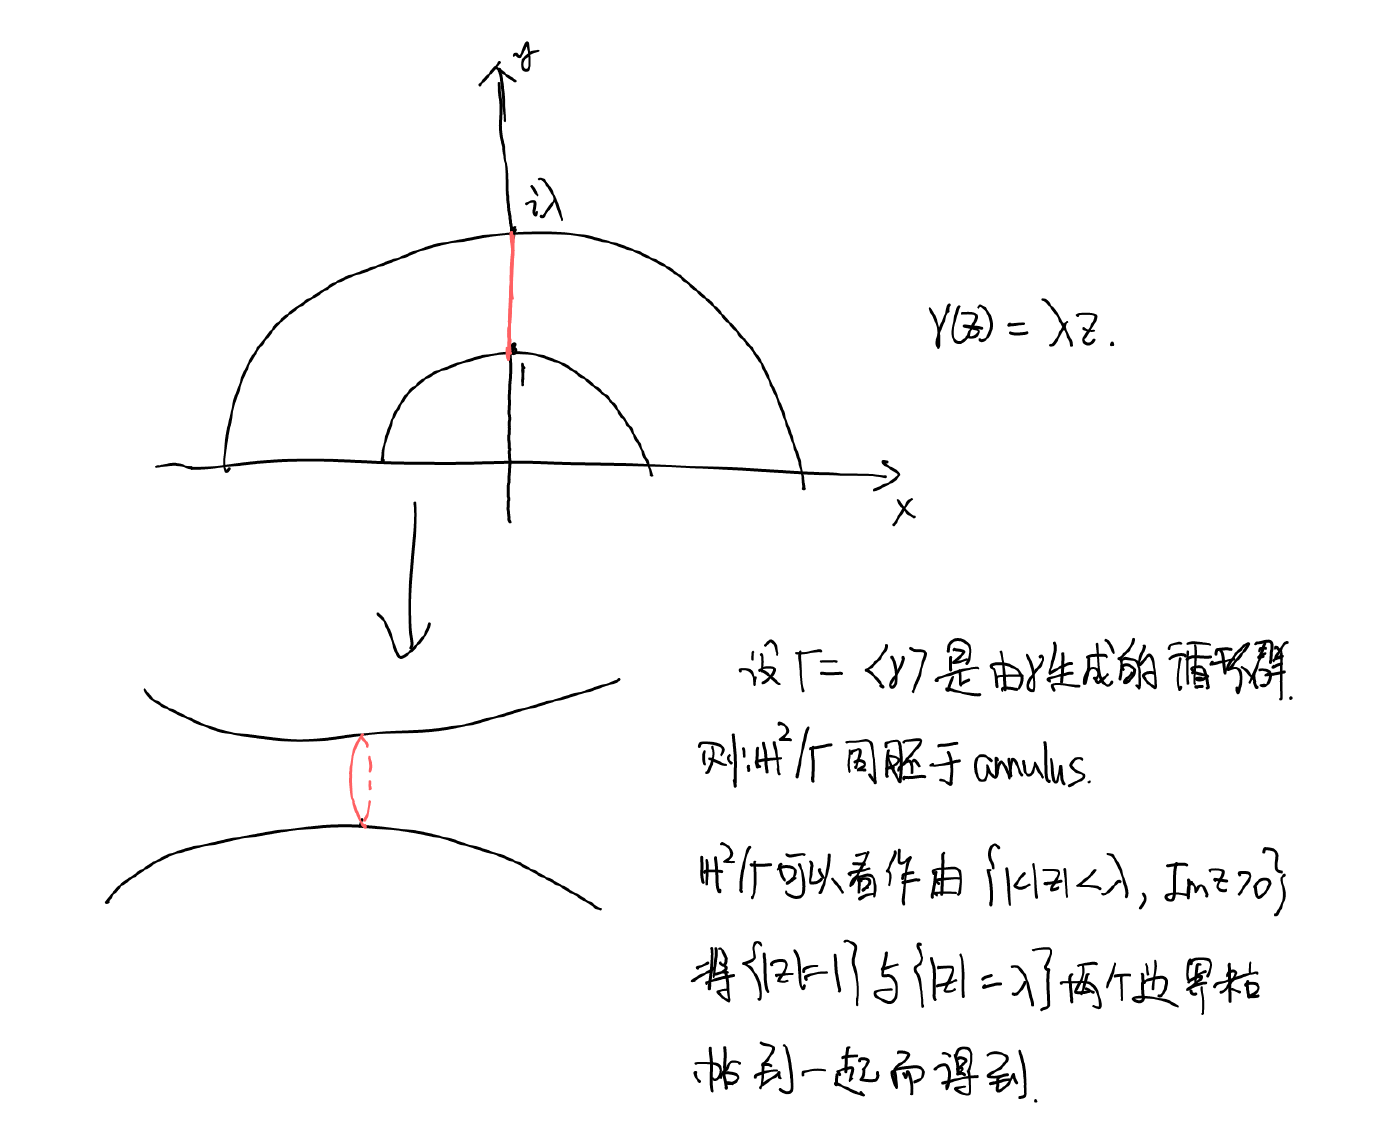 y
iλ
γ(z) = λz.
1
x
设 Γ = <γ> 是由γ生成的循环群.
则 ℍ²/Γ 同胚于 annulus.
ℍ²/Γ 可以看作由 {1<|z|<λ, Im z>0}
将 {|z|=1} 与 {|z|=λ} 两个边界粘
帖到一起而得到.